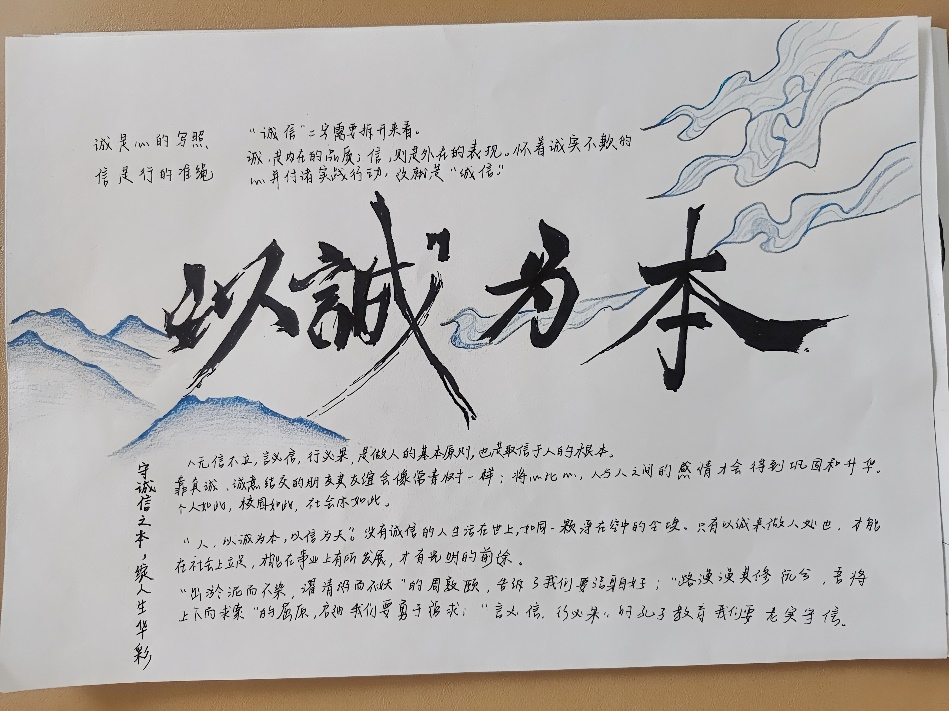 诚是心的写照
信是行的准绳
“诚信”二字需要拆开来看。
诚,是内在的品质；信,则是外在的表现。怀着诚实不欺的
心并付诸实践行动,这就是“诚信”。
以誠为本
人无信不立,言必信,行必果,是做人的基本原则,也是取信于人的根本。
靠真诚、诚意结交的朋友其友谊会像常青树一样；将心比心,人与人之间的感情才会得到巩固和升华。
个人如此,校园如此,社会亦如此。
“人,以诚为本,以信为天”。没有诚信的人生活在世上,如同一颗浮在空中的尘埃。只有以诚来做人处世,才能
在社会上立足,才能在事业上有所发展,才有光明的前途。
“出淤泥而不染,濯清涟而不妖”的周敦颐,告诉了我们要洁身自好；“路漫漫其修远兮,吾将
上下而求索”的屈原,启迪我们要勇于追求；“言必信,行必果”的孔子教育我们要老实守信。
守诚信之本,缤人生华彩